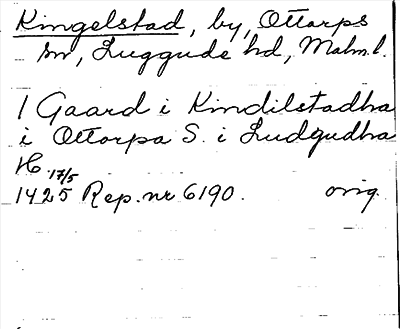 Kingelstad, by, Ottarps
sn, Luggude hd, Malm.l.
1 Gaard i Kindilstadha
i Ottarpa S. i Ludgudha
H. 17/5
1425 Rep. nr 6190. orig.